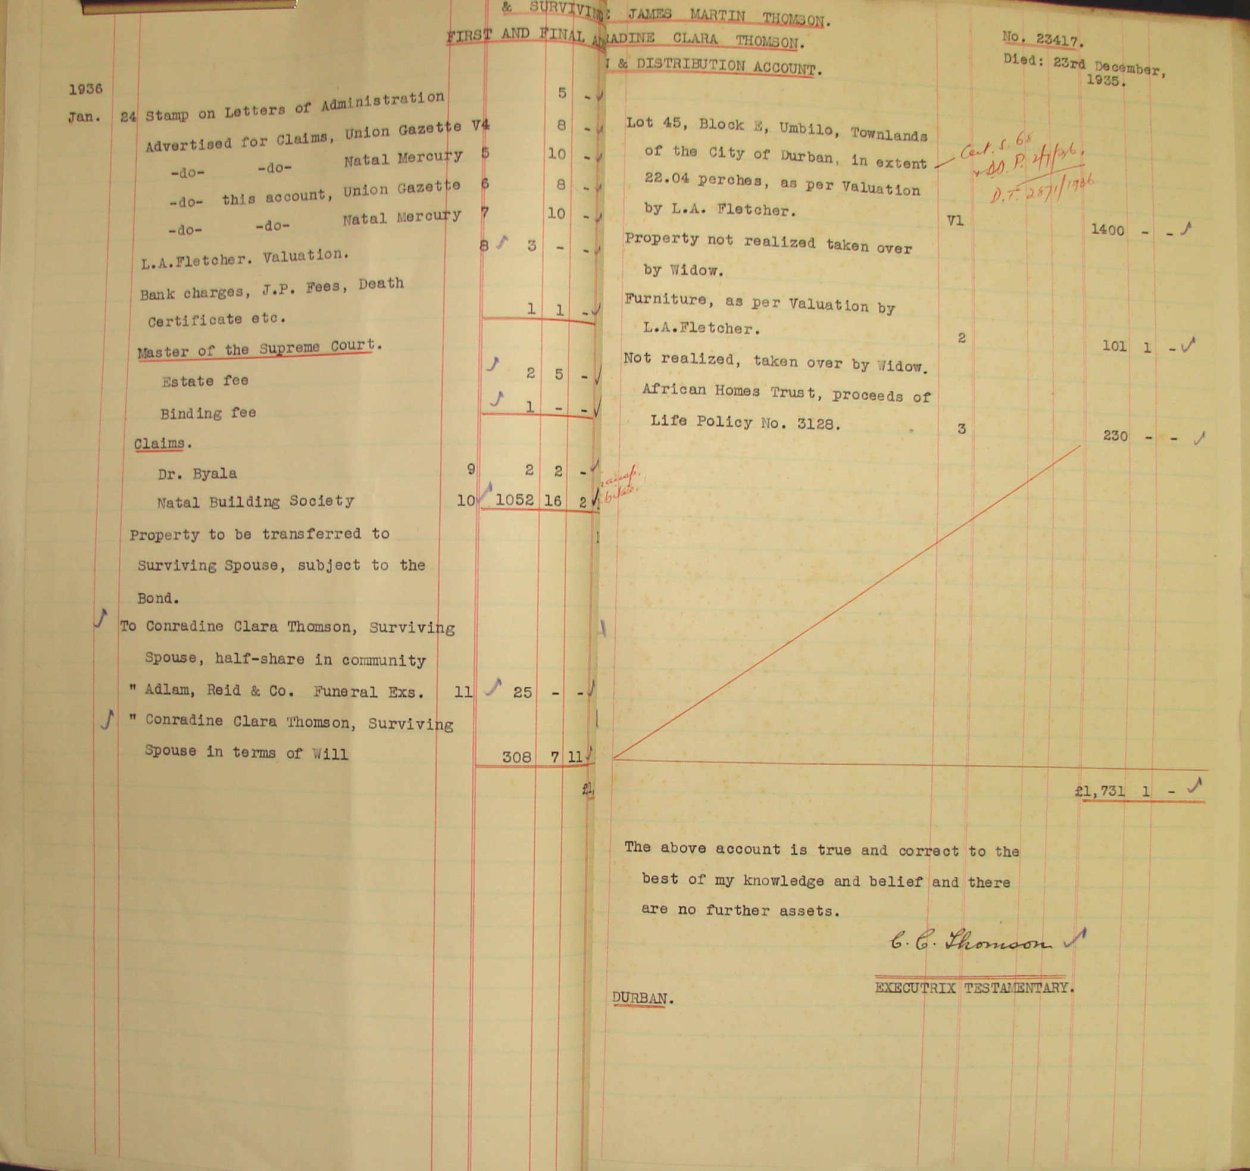 & SURVIVIN
FIRST AND FINAL
1936
Jan. 24 Stamp on Letters of Administration 5 -
Advertised for Claims, Union Gazette V4 8 -
-do- -do- Natal Mercury 5 10 -
-do- this account, Union Gazette 6 8 -
-do- -do- Natal Mercury 7 10 -
L.A.Fletcher. Valuation. 8 3 - -
Bank charges, J.P. Fees, Death
Certificate etc. 1 1 -
Master of the Supreme Court.
Estate fee 2 5 -
Binding fee 1 - -
Claims.
Dr. Byala 9 2 2 -
Natal Building Society 10 1052 16 2
Property to be transferred to
Surviving Spouse, subject to the
Bond.
To Conradine Clara Thomson, Surviving
Spouse, half-share in community
" Adlam, Reid & Co. Funeral Exs. 11 25 - -
" Conradine Clara Thomson, Surviving
Spouse in terms of Will 308 7 11
£1
JAMES MARTIN THOMSON.
RADINE CLARA THOMSON.
N & DISTRIBUTION ACCOUNT.
No. 23417.
Died: 23rd December,
1935.
Lot 45, Block E, Umbilo, Townlands
of the City of Durban, in extent
22.04 perches, as per Valuation
by L.A. Fletcher. V1 1400 - -
D.T. 2571/1936
Property not realized taken over
by Widow.
Furniture, as per Valuation by
L.A.Fletcher. 2 101 1 -
Not realized, taken over by Widow.
African Homes Trust, proceeds of
Life Policy No. 3128. 3 230 - -
£1,731 1 -
The above account is true and correct to the
best of my knowledge and belief and there
are no further assets.
C. C. Thomson
EXECUTRIX TESTAMENTARY.
DURBAN.